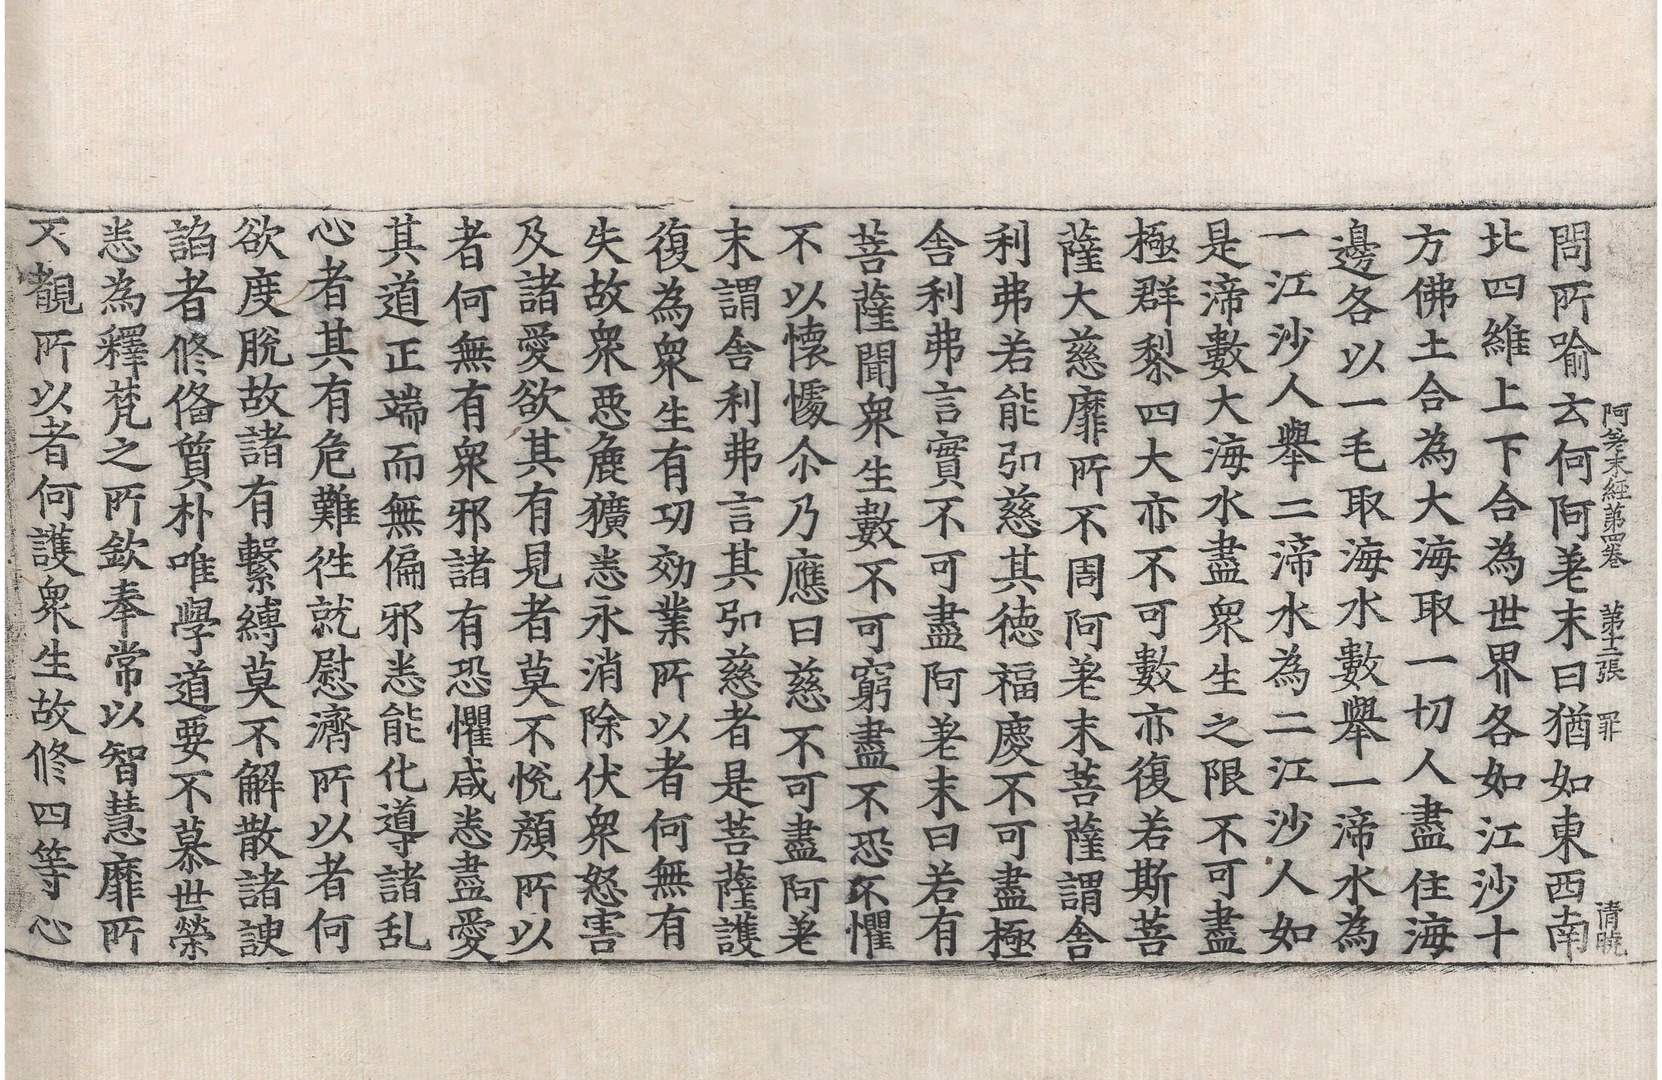 阿差末經第四卷 第十二張 罪 清曉
問所喻云何阿差末曰猶如東西南
北四維上下合為世界各如江沙十
方佛土合為大海取一切人盡住海
邊各以一毛取海水數舉一渧水為
一江沙人舉二渧水為二江沙人如
是渧數大海水盡衆生之限不可盡
極群黎四大亦不可數亦復若斯菩
薩大慈靡所不周阿差末菩薩謂舍
利弗若能弘慈其德福慶不可盡極
舍利弗言實不可盡阿差末曰若有
菩薩聞衆生數不可窮盡不恐不懼
不以懷懅尒乃應曰慈不可盡阿差
末謂舍利弗言其弘慈者是菩薩護
復為衆生有功効業所以者何無有
失故衆惡麁獷恚永消除伏衆怒害
及諸愛欲其有見者莫不悅顏所以
者何無有衆邪諸有恐懼咸悉盡愛
其道正端而無偏邪悉能化導諸乱
心者其有危難徃就慰濟所以者何
欲度脫故諸有繫縛莫不解散諸諛
諂者修俻質朴唯學道要不慕世榮
悉為釋梵之所欽奉常以智慧靡所
不覩所以者何護衆生故修四等心